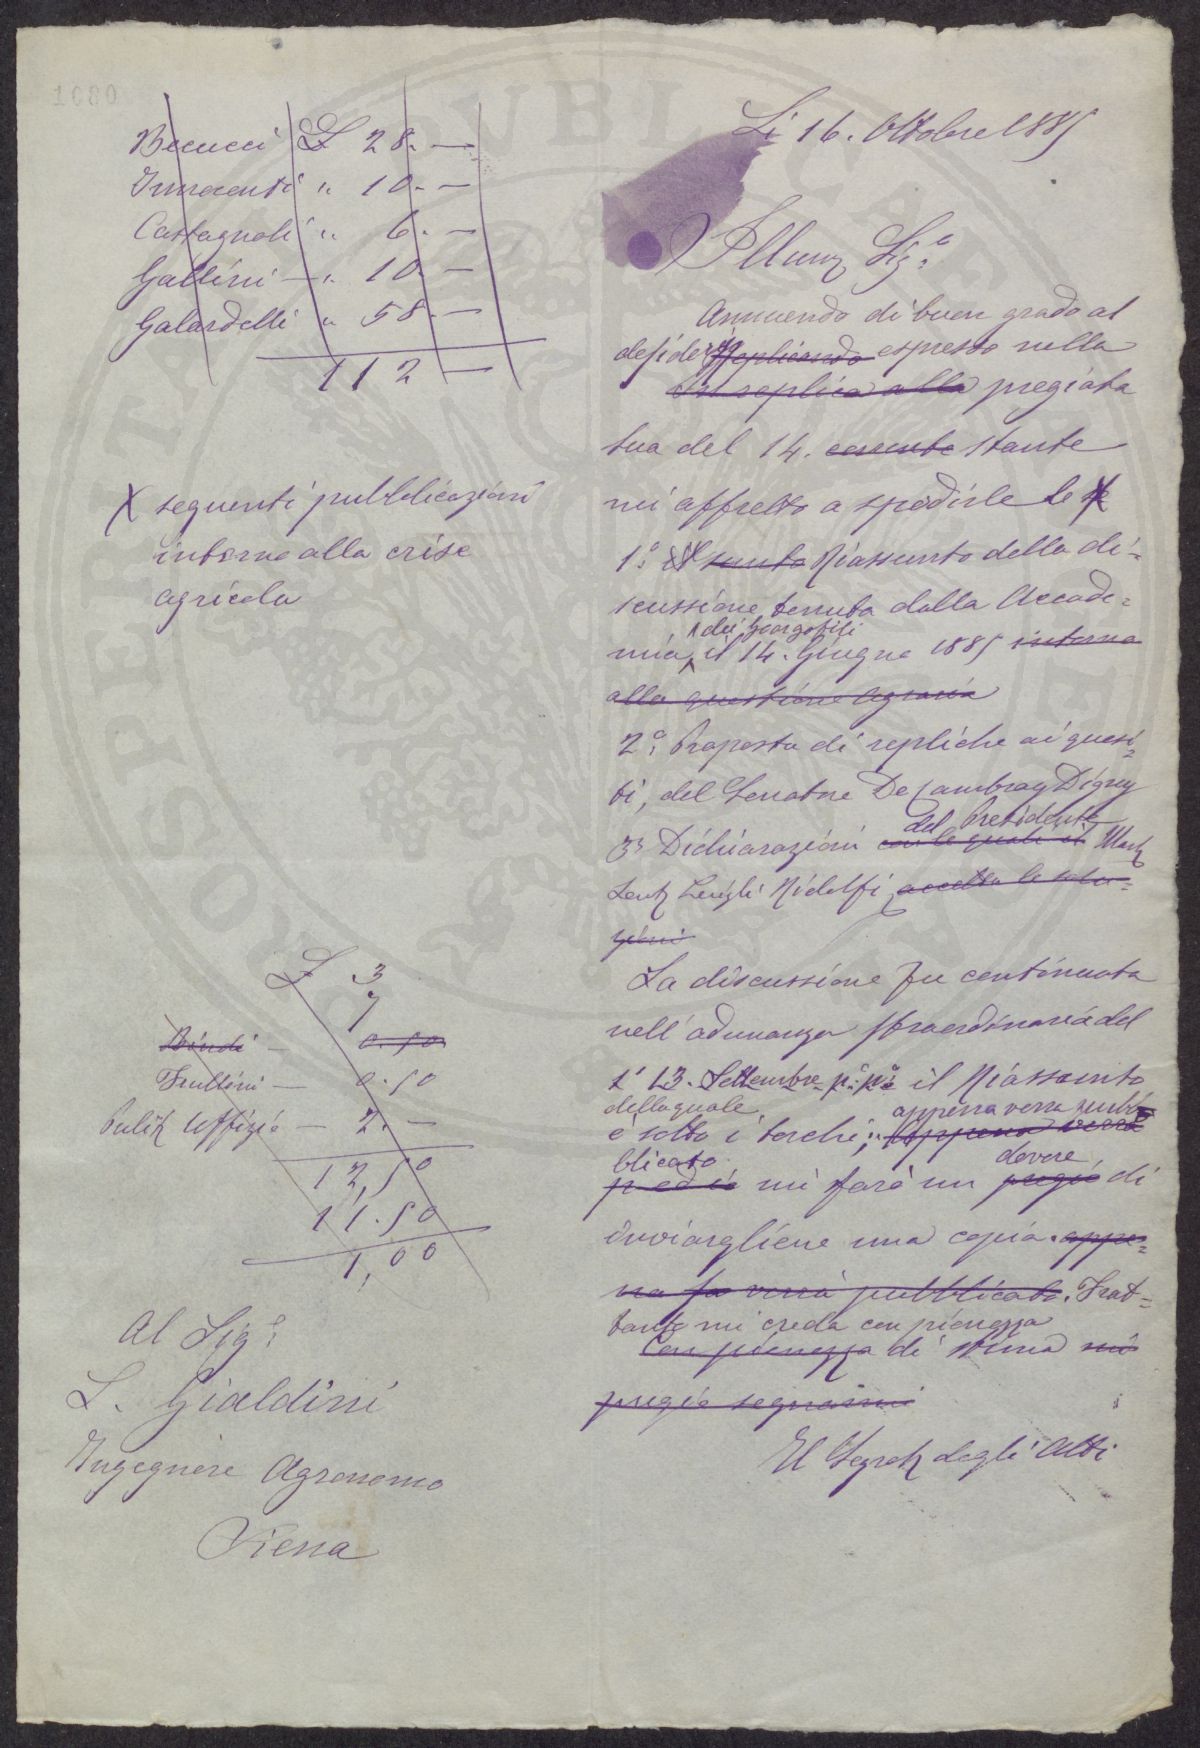 1080
Becucci £ 28. —
Innocenti " 10. —
Castagnoli " 6. —
Gallini — " 10. —
Galardelli " 58. —
112 —
X seguenti pubblicazioni
intorno alla crise
agricola
£ 3
7
Bindi — 0.50
Frullini — 0.50
Pulit Uffizio — 2. —
12,50
11.50
1,00
Al Sigr:
L. Gialdini
Ingegnere Agronomo
Siena
Li 16. Ottobre 1885
Illmo Sige:
Annuendo di buon grado al
desiderio replicando espresso nella
In replica alla pregiata
sua del 14. corrente stante
mi affretto a spedirle le X
1°: Il sunto Riassunto della di=
scussione tenuta dalla Accade=
dei Georgofili
mia, il 14. Giugno 1885 intorno
alla questione agraria
2°: Proposta di repliche ai quesi=
ti, del Senatore De Cambray Digny
del Presidente
3° Dichiarazioni con le quali il March
Senat Luigi Ridolfi accetta le solu=
zioni
La discussione fu continuata
nell'adunanza straordinaria del
13. Settembre p:p: il Riassunto
della quale appena verrà pub=
è sotto i torchi; Appena verrà
blicato dovere
mi farò un pregio di
inviargliene una copia. appe=
na fa verrà pubblicato. Frat=
tanto mi creda con pienezza
Con pienezza di stima mi
pregio segnarmi
Il Segret degli Atti